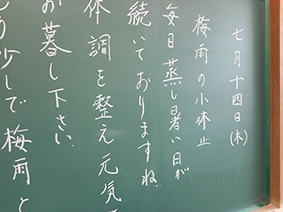 七月十四日(木)
梅雨の小休止
毎日蒸し暑い日が
続いておりますね。
体調を整え元気
お暮し下さい。
もう少しで梅雨と